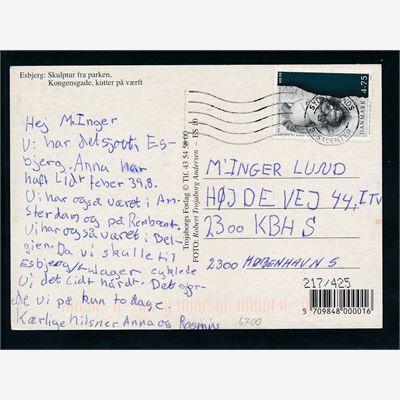 Esbjerg: Skulptur fra parken,
Kongensgade, kutter på værft
Hej M.Inger
Vi har det sjovt i Es-
bjerg. Anna har
haft lidt feber 39,8.
Vi har også været i Am-
sterdam og på Rembrant.
Vi har også været i Bel-
gien. Da vi skulle til
Esbjerg cyklede
vi det lidt hårdt. Det gjor-
de vi på kun to dage
Kærlige hilsner Anna og Rasmus
Trojaborgs Forlag © Tlf. 43 54 58 00
FOTO: Robert Trojaborg Andersen – ES 10
4.75
DANMARK
M'INGER LUND
HØJDEVEJ 44, I TV
2300 KBH S
2300 KØBENHAVN S
217/425
5 709848 000016
6700